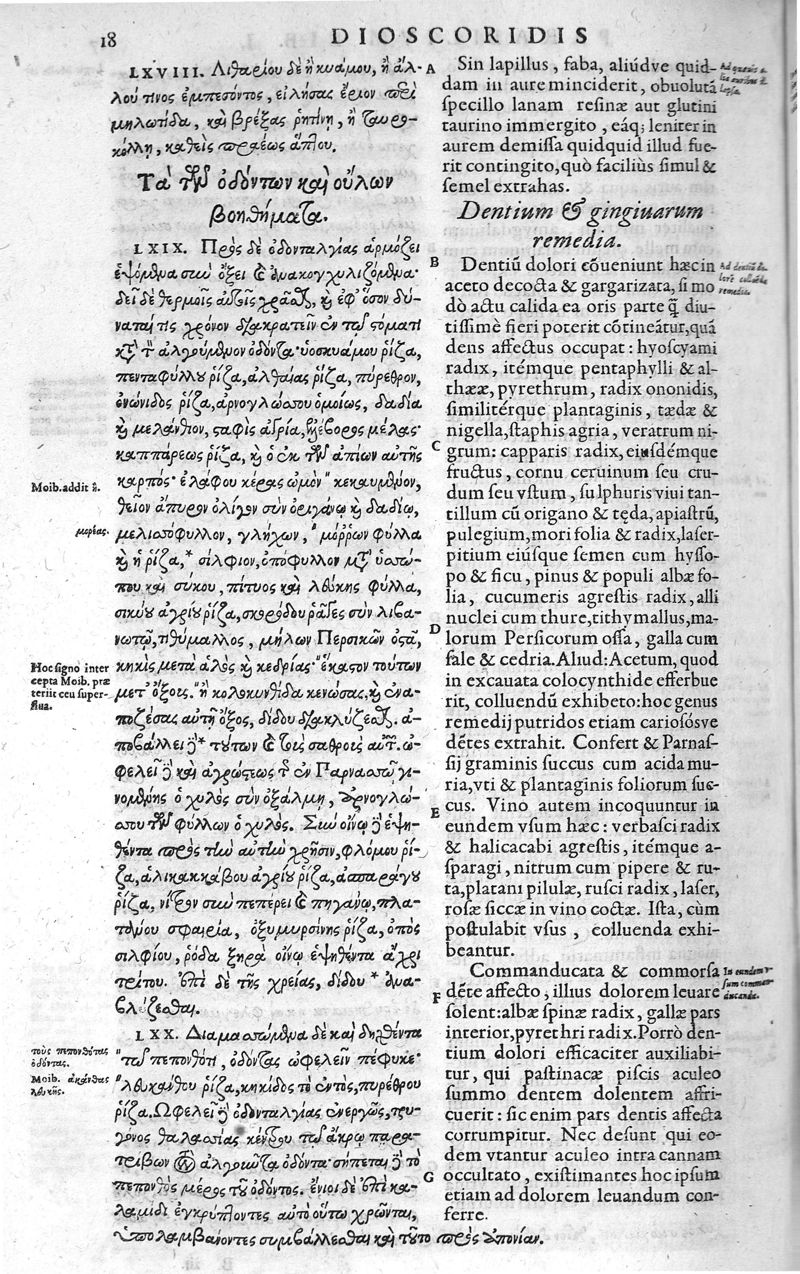 18 DIOSCORIDIS
LXVIII. Λιθαρίου δὲ ἢ κυάμου, ἢ ἄλ-
λου τινος ἐμπεσόντος, εἰλήσας ἔριον περὶ
μηλωτίδα, καὶ βρέξας ῥητίνῃ, ἢ ταυρο-
κόλλῃ, καθεὶς πραέως ἅπλου.
Τὰ τῶν ὀδόντων καὶ οὔλων
βοηθήματα.
LXIX. Πρὸς δὲ ὀδονταλγίας ἁρμόζει
ἑψόμενα σὺν ὄξει καὶ ἀνακογχυλιζόμενα·
δεῖ δὲ θερμοῖς αὐτοῖς χρᾶσθαι, καὶ ἐφ' ὅσον δύ-
ναταί τις χρόνον διακρατεῖν ἐν τῷ στόματι
κατὰ τὸν ἀλγούμενον ὀδόντα· ὑοσκυάμου ῥίζα,
πενταφύλλου ῥίζα, ἀλθαίας ῥίζα, πύρεθρον,
ὀνωνίδος ῥίζα, ἀρνογλώσσου ὁμοίως, δᾳδία
καὶ μελάνθιον, σταφὶς ἀγρία, ἑλέβορος μέλας·
καππάρεως ῥίζα, καὶ ὁ ἐκ τῶν ἀπίων αὐτῆς
καρπός· ἐλάφου κέρας ὠμὸν " κεκαυμένον,
θεῖον ἄπυρον ὀλίγον σὺν ὀριγάνῳ καὶ δαδίῳ,
μελισσόφυλλον, γλήχων, " μόρρων φύλλα
καὶ ἡ ῥίζα, * σίλφιον, ὀπόφυλλον μετὰ ὑσσώ-
που καὶ σύκου, πίτυος καὶ λεύκης φύλλα,
σικύου ἀγρίου ῥίζα, σκορόδου ῥᾶγες σὺν λιβα-
νωτῷ, τιθύμαλλος, μήλων Περσικῶν ὀστᾶ,
κηκὶς μετὰ ἁλὸς καὶ κεδρίας· " ἕκαστον τούτων
μετ' ὄξοις. " ἢ κολοκυνθίδα κενώσας, καὶ ἐνα-
ποζέσας αὐτῇ ὄξος, δίδου διακλύζεσθαι. ἀ-
ποβάλλει γὰρ * τούτων καὶ τοὺς σαθροὺς αὐτῶν. ὠ-
φελεῖ δὲ καὶ ἀγρώστεως τῆς ἐν Παρνασσῷ γι-
νομένης ὁ χυλὸς σὺν ὀξάλμῃ, ἀρνογλώσ-
σου τῶν φύλλων ὁ χυλός. Σὺν οἴνῳ δὲ ἑψη-
θέντα πρὸς τὴν αὐτὴν χρῆσιν, φλόμου ῥί-
ζα, ἁλικακκάβου ἀγρίου ῥίζα, ἀσπαράγου
ῥίζα, νίτρον σὺν πεπέρει καὶ πηγάνῳ, πλα-
τάνου σφαιρία, ὀξυμυρσίνης ῥίζα, ὀπὸς
σιλφίου, ῥόδα ξηρὰ οἴνῳ ἑψηθέντα ἄχρι
τρίτου. ἐπὶ δὲ τῆς χρείας, δίδου * ἀνα-
κλύζεσθαι.
LXX. Διαμασσώμενα δὲ καὶ δηχθέντα
" τῷ πεπονθότι, ὀδόντας ὠφελεῖν πέφυκε·
" λευκακάνθου ῥίζα, κηκῖδος τὸ ἐντὸς, πυρέθρου
ῥίζα. Ὠφελεῖ δὲ ὀδονταλγίας ἐνεργῶς, τρυ-
γόνος θαλασσίας κέντρου τῷ ἄκρῳ παρα-
τρίβων τὸν ἀλγοῦντα ὀδόντα· σήπεται γὰρ τὸ
πεπονθὸς μέρος τοῦ ὀδόντος. ἔνιοι δὲ ἐπὶ κα-
λαμιδι ἐγκρύπτοντες αὐτὸ οὕτω χρῶνται,
ὑπολαμβάνοντες συμβάλλεσθαι καὶ τοῦτο πρὸς ἀπονίαν.
Moib. addit ἢ.
μορέας.
Hoc signo inter
cepta Moib. præ
teriit ceu super-
flua.
τοὺς πεπονθότας
ὀδόντας.
Moib. ἀκάνθας
λευκῆς.
A
B
C
D
E
F
G
Sin lapillus, faba, aliúdve quid-
dam in aurem inciderit, obuolutâ
specillo lanam resinæ aut glutini
taurino immergito, eáq; leniter in
aurem demissa quidquid illud fue-
rit contingito, quò facilius simul &
semel extrahas.
Dentium & gingiuarum
remedia.
Dentiũ dolori cõueniunt hæc in
aceto decocta & gargarizata, si mo
dò actu calida ea oris parte q̃ diu-
tissimè fieri poterit cõtineãtur, quã
dens affectus occupat: hyoscyami
radix, itémque pentaphylli & al-
thææ, pyrethrum, radix ononidis,
similitérque plantaginis, tædæ &
nigella, staphis agria, veratrum ni-
grum: capparis radix, eiusdémque
fructus, cornu ceruinum seu cru-
dum seu vstum, sulphuris viui tan-
tillum cũ origano & tęda, apiastrũ,
pulegium, mori folia & radix, laser-
pitium eiúsque semen cum hysso-
po & ficu, pinus & populi albæ fo-
lia, cucumeris agrestis radix, alli
nuclei cum thure, tithymallus, ma-
lorum Persicorum ossa, galla cum
sale & cedria. Aliud: Acetum, quod
in excauata colocynthide efferbue
rit, colluendũ exhibeto: hoc genus
remedij putridos etiam cariosósve
dẽtes extrahit. Confert & Parnas-
sij graminis succus cum acida mu-
ria, vti & plantaginis foliorum suc-
cus. Vino autem incoquuntur in
eundem vsum hæc: verbasci radix
& halicacabi agrestis, itémque a-
sparagi, nitrum cum pipere & ru-
ta, platani pilulæ, rusci radix, laser,
rosæ siccæ in vino coctæ. Ista, cùm
postulabit vsus, colluenda exhi-
beantur.
Commanducata & commorsa
dẽte affecto, illius dolorem leuare
solent: albæ spinæ radix, gallæ pars
interior, pyrethri radix. Porrò den-
tium dolori efficaciter auxiliabi-
tur, qui pastinacæ piscis aculeo
summo dentem dolentem affri-
cuerit: sic enim pars dentis affecta
corrumpitur. Nec desunt qui eo-
dem vtantur aculeo intra cannam
occultato, existimantes hoc ipsum
etiam ad dolorem leuandum con-
ferre.
Ad dentiũ do-
remedia.
In eundem v-
sum comman-
ducanda.